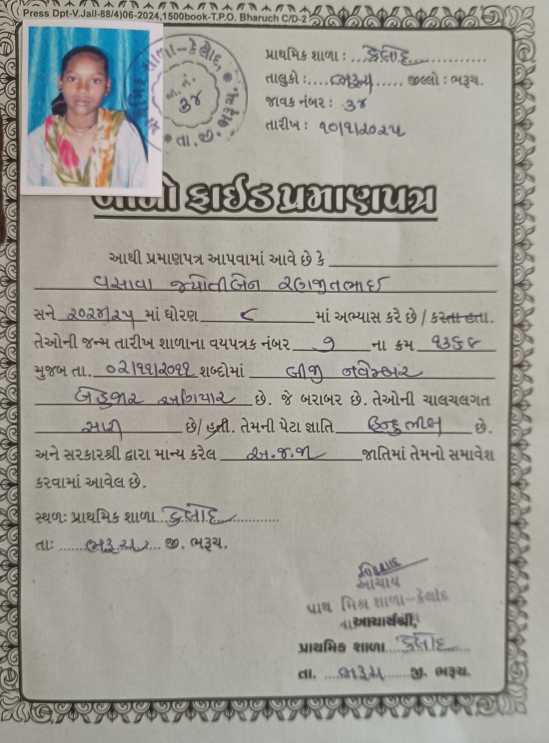 Press Dpt-V.Jall-88/4)06-2024,1500book-T.P.O. Bharuch C/D-2
પ્રાથમિક શાળા : ...કેલોદ
તાલુકો : ...ભરૂચ..... જીલ્લો : ભરૂચ.
જાવક નંબર : ૩૪
તારીખ : ૧૦/૧/૨૦૨૫
૩૪
તા. જી.
બોનોફાઈડ પ્રમાણપત્ર
આથી પ્રમાણપત્ર આપવામાં આવે છે કે
વસાવા જ્યોતીબેન રણજીતભાઈ
સને ૨૦૨૪/૨૫ માં ધોરણ ૮ માં અભ્યાસ કરે છે / કરતા હતા.
તેઓની જન્મ તારીખ શાળાના વયપત્રક નંબર ૭ ના ક્રમ ૧૩૬૬
મુજબ તા. ૦૨/૧૧/૨૦૧૧ શબ્દોમાં બીજી નવેમ્બર
બેહજાર અગિયાર છે. જે બરાબર છે. તેઓની ચાલચલગત
સારી છે/ હતી. તેમની પેટા જ્ઞાતિ હિન્દુ ભીલ છે.
અને સરકારશ્રી દ્વારા માન્ય કરેલ અ.જ.જા જાતિમાં તેમનો સમાવેશ
કરવામાં આવેલ છે.
સ્થળ: પ્રાથમિક શાળા ..કેલોદ
તા: ......ભરૂચ... જી. ભરૂચ.
આચાર્ય
મિશ્ર શાળા-કેલોદ
આચાર્યશ્રી,
પ્રાથમિક શાળા...કેલોદ....
તા. ...ભરૂચ..... જી. ભરૂચ.